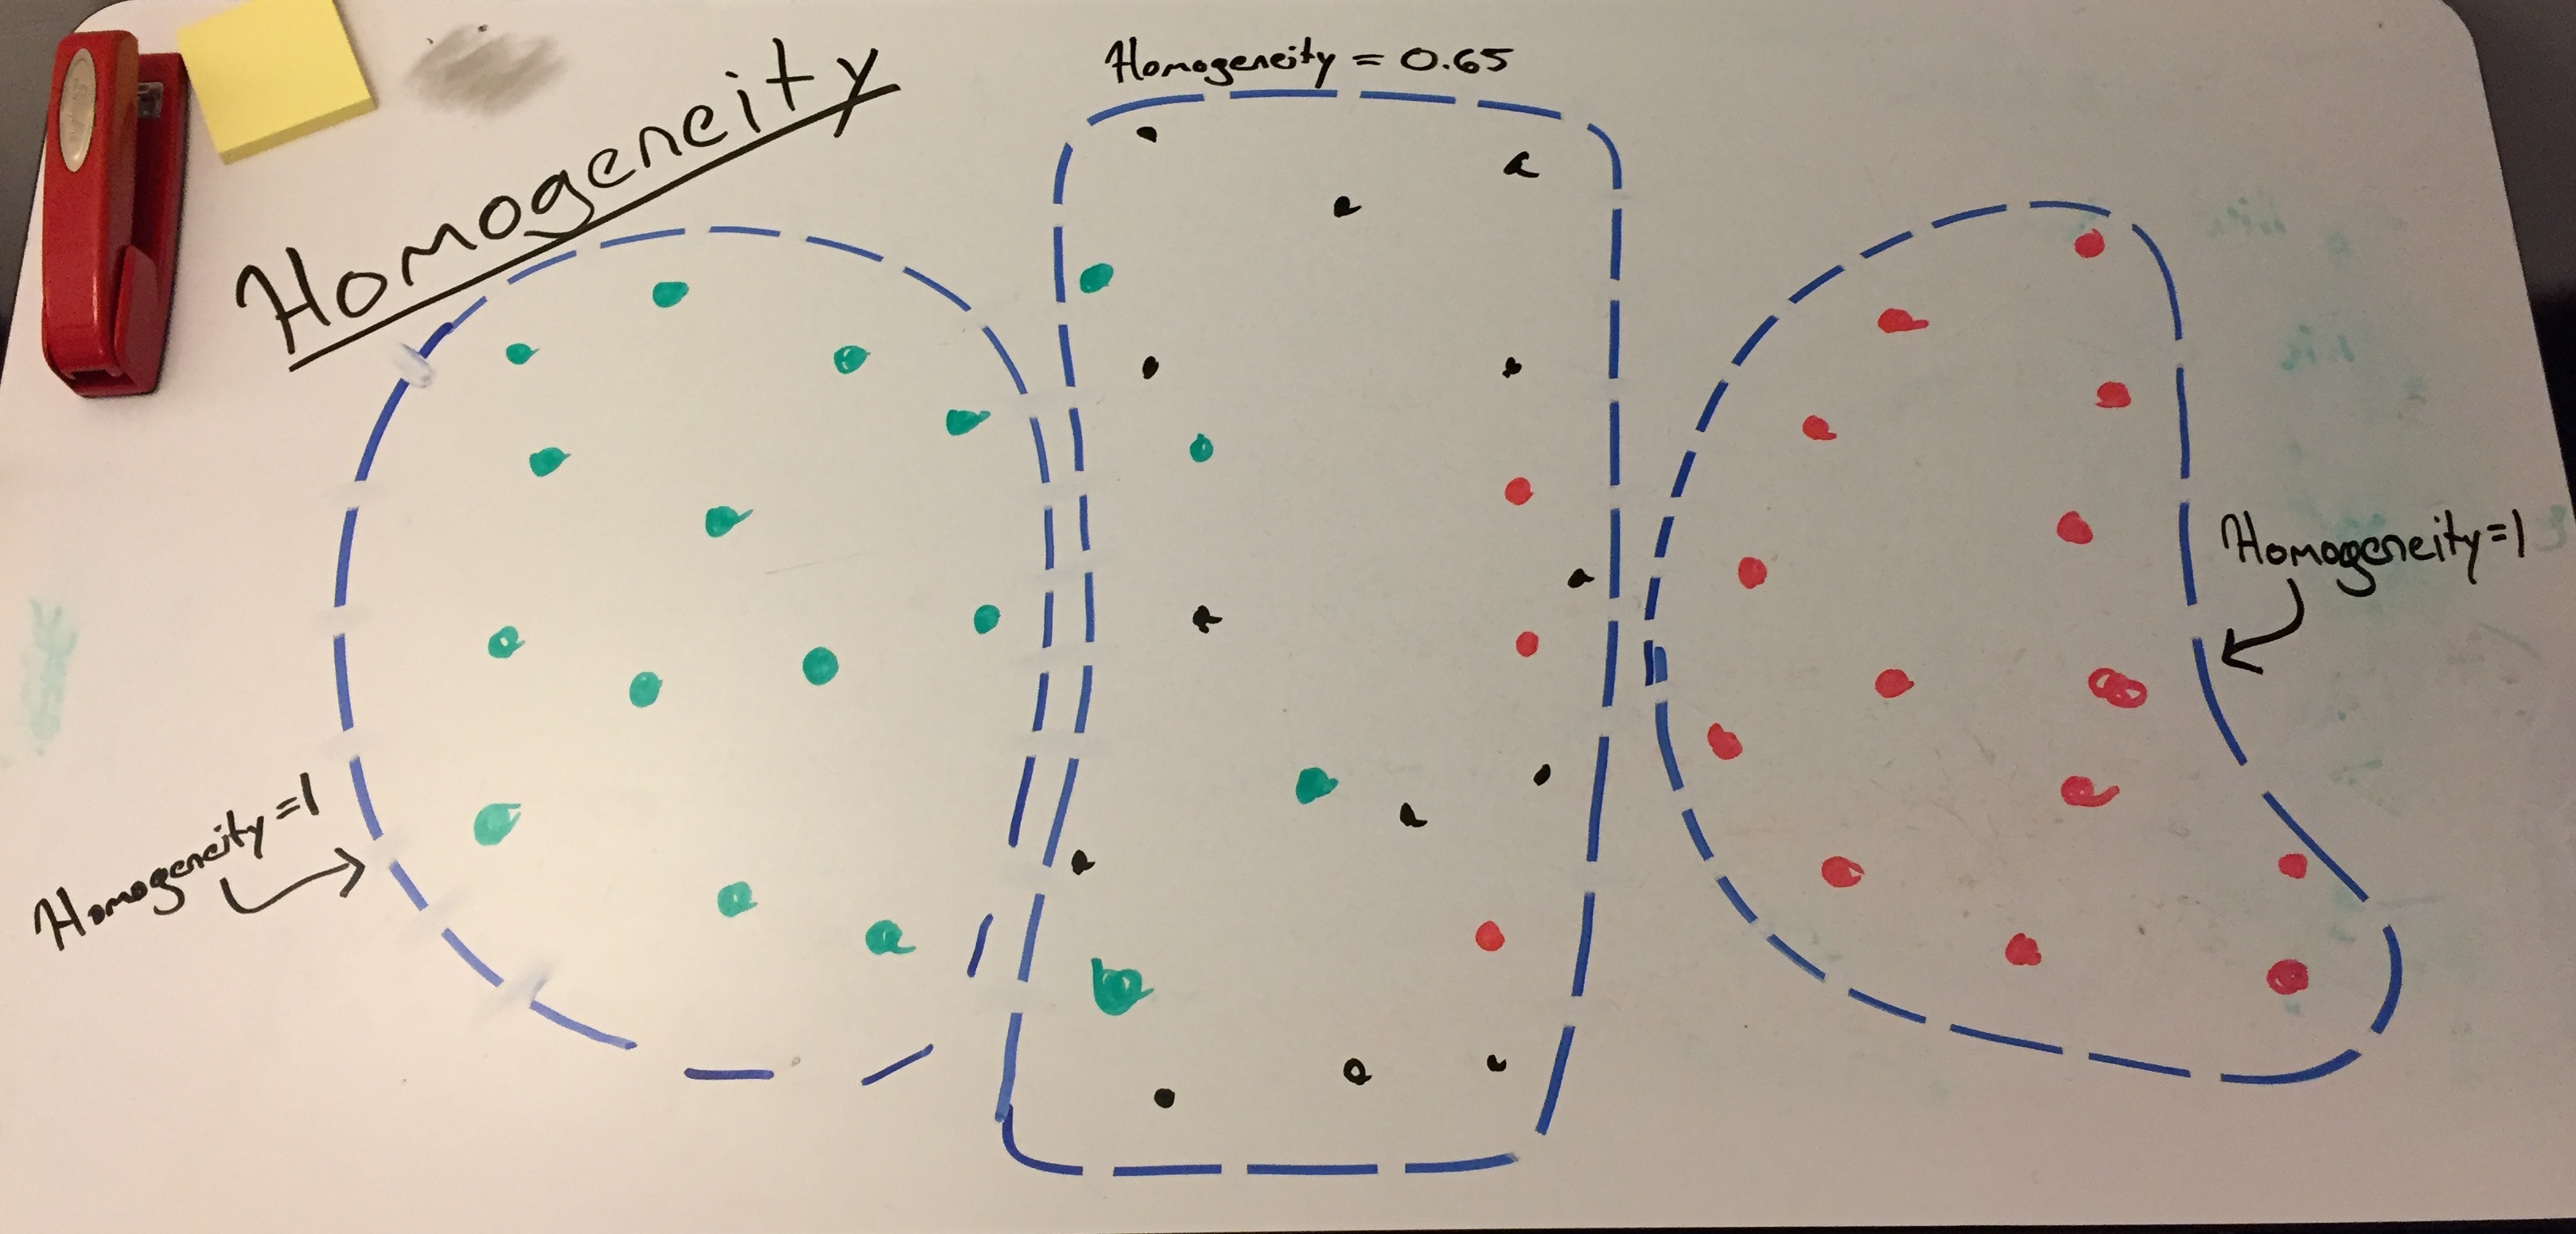 Homogeneity
Homogeneity = 0.65
Homogeneity=1
Homogeneity=1